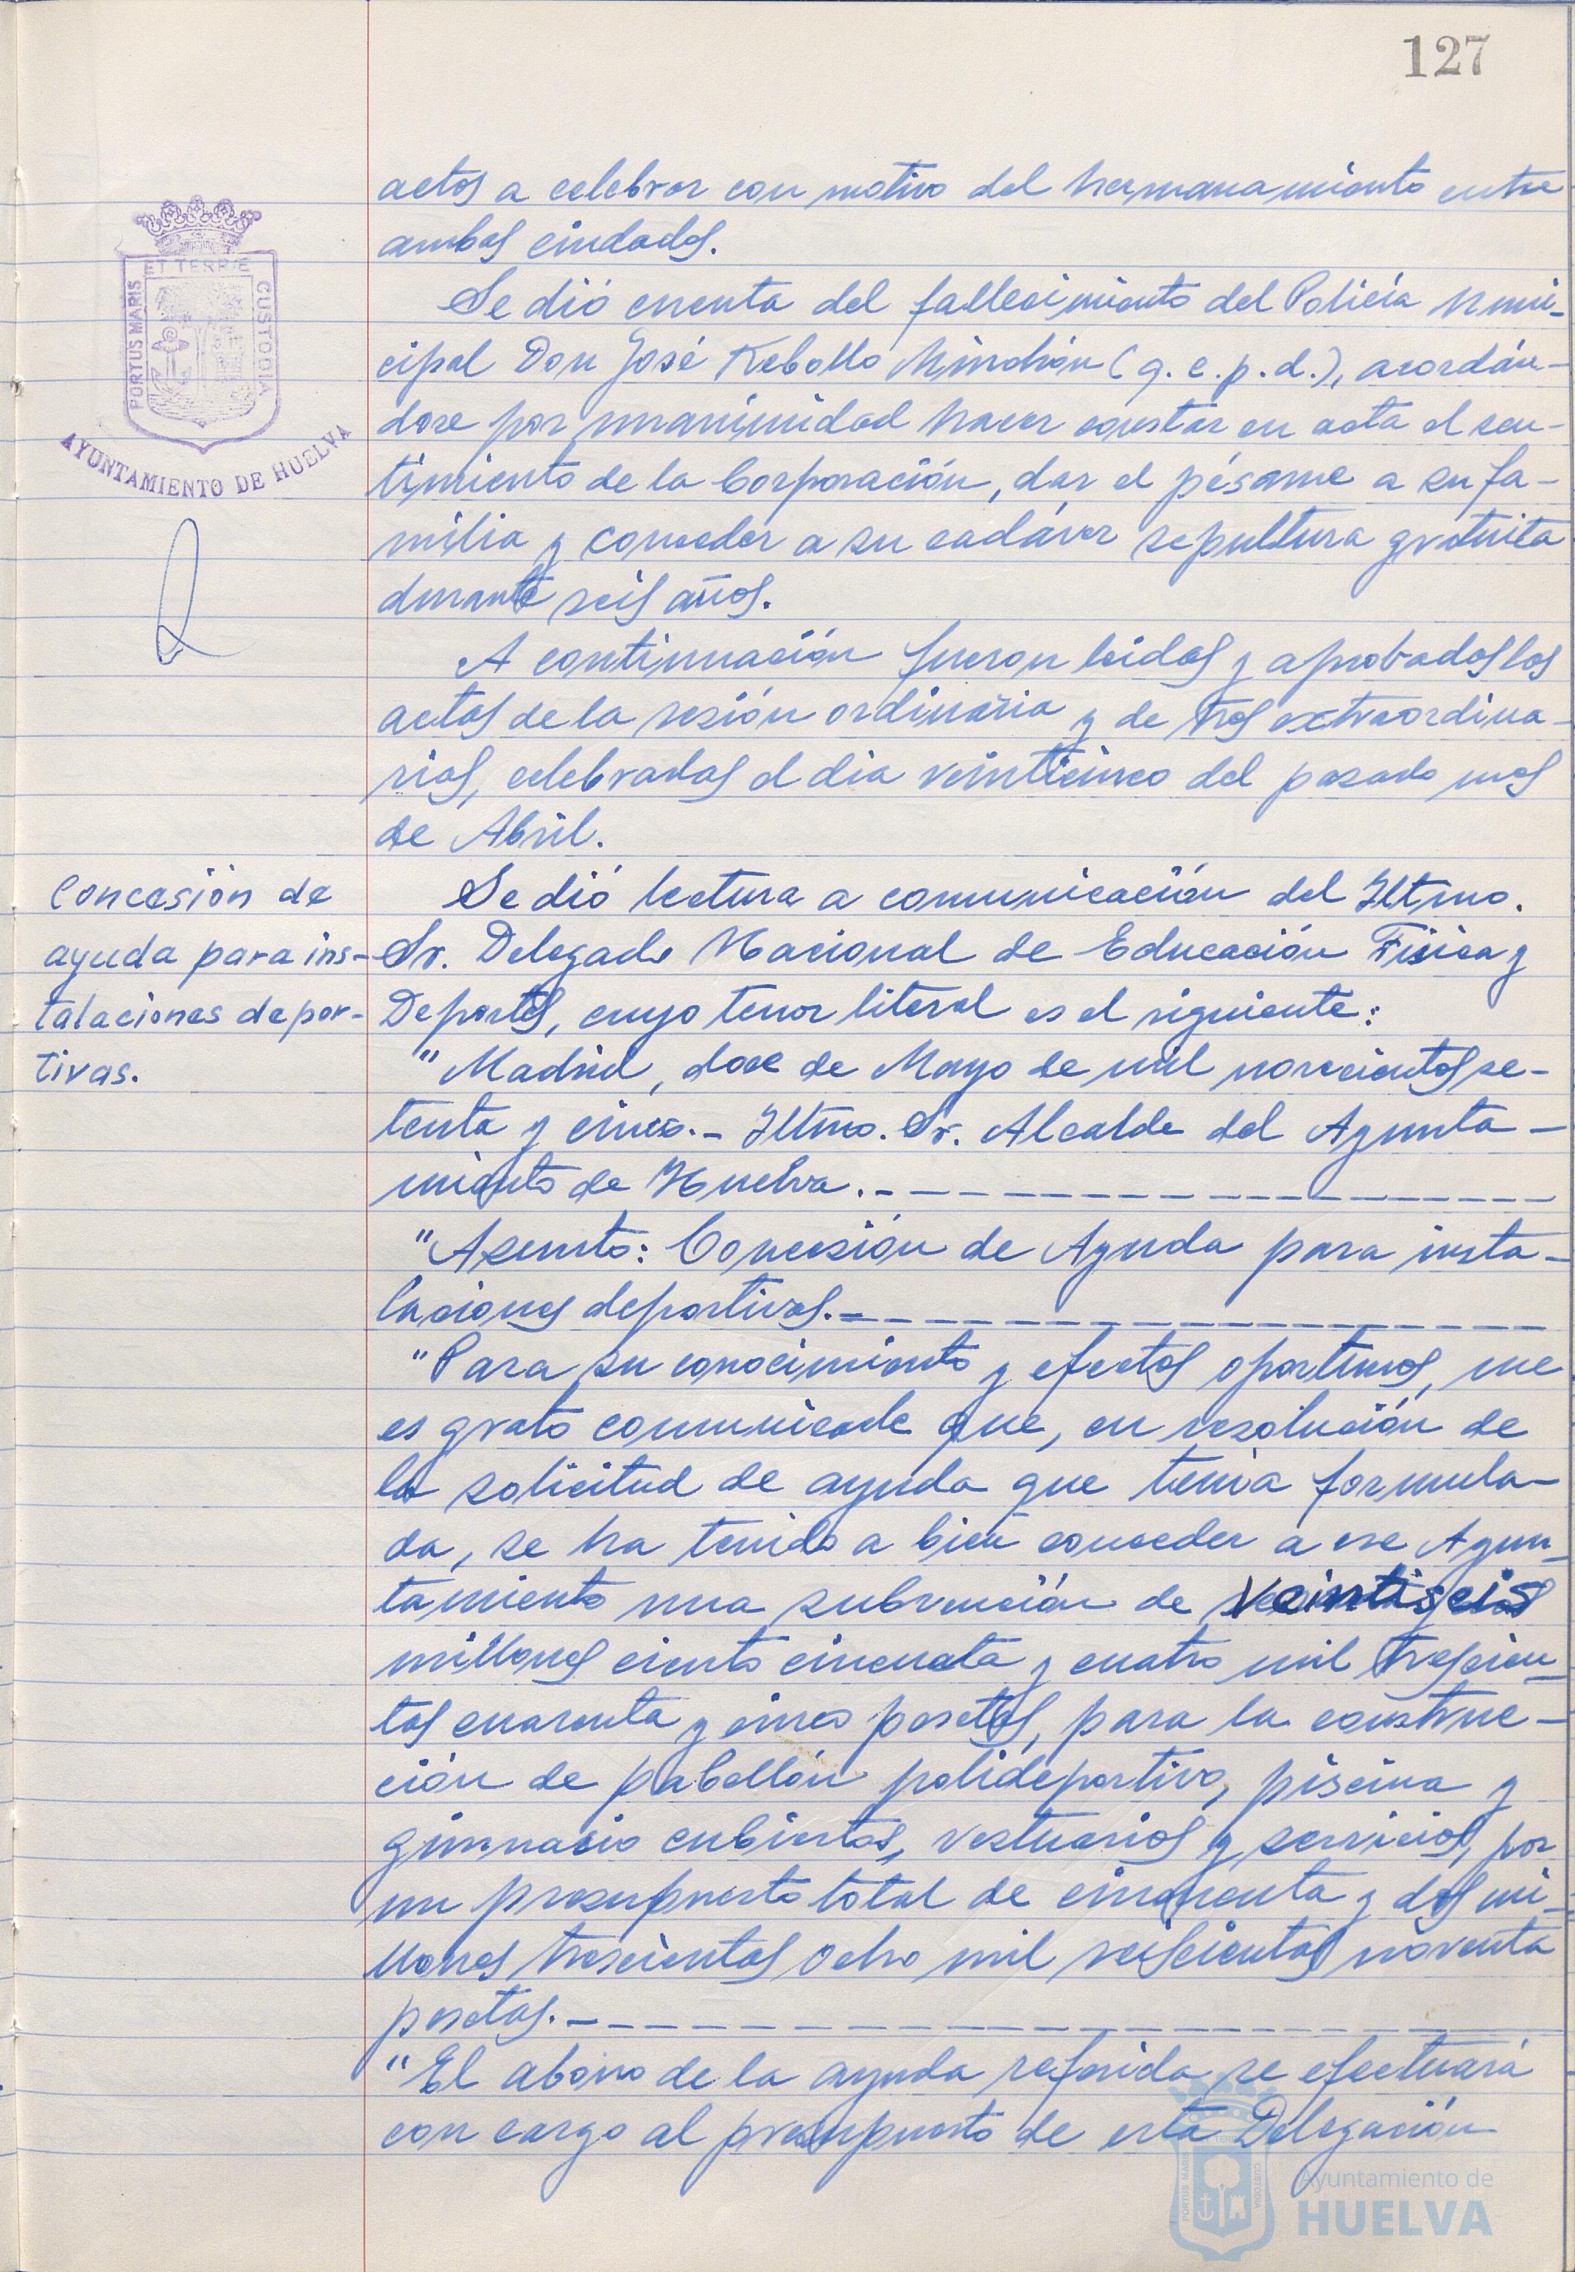 127
actos a celebrar con motivo del hermanamiento entre
ambas ciudades.
Se dió cuenta del fallecimiento del Policía Muni-
cipal Don José Rebollo (q.e.p.d.), acordán-
dose por unanimidad hacer constar en acta el sen-
timiento de la Corporación, dar el pésame a su fa-
milia y conceder a su cadáver sepultura gratuita
durante seis años.
A continuación fueron leidas y aprobadas las
actas de la sesión ordinaria y de tres extraordina-
rias, celebradas el dia veinticinco del pasado mes
de Abril.
Concesión de
ayuda para ins-
talaciones depor-
tivas.
Se dió lectura a comunicación del Iltmo.
Sr. Delegado Nacional de Educación Fisica y
Deportes, cuyo tenor literal es el siguiente:
"Madrid, doce de Mayo de mil novecientos se-
tenta y cinco.- Iltmo. Sr. Alcalde del Ayunta-
miento de Huelva.-
"Asunto: Concesión de Ayuda para insta-
laciones deportivas.-
"Para su conocimiento y efectos oportunos, me
es grato comunicarle que, en resolución de
la solicitud de ayuda que tenia formula-
da, se ha tenido a bien conceder a ese Ayun-
tamiento una subvención de veintiseis
millones ciento cincuenta y cuatro mil trescien-
tas cuarenta y cinco pesetas, para la construc-
ción de pabellón polideportivo, piscina y
gimnasio cubiertos, vestuarios y servicios, por
un presupuesto total de cincuenta y dos mi-
llones trescientas ocho mil seiscientas noventa
pesetas.-
"El abono de la ayuda referida se efectuará
con cargo al presupuesto de esta Delegación
PORTUS MARIS
ET TERRÆ
CUSTODIA
AYUNTAMIENTO DE HUELVA
PORTUS MARIS
CUSTODIA
Ayuntamiento de
HUELVA